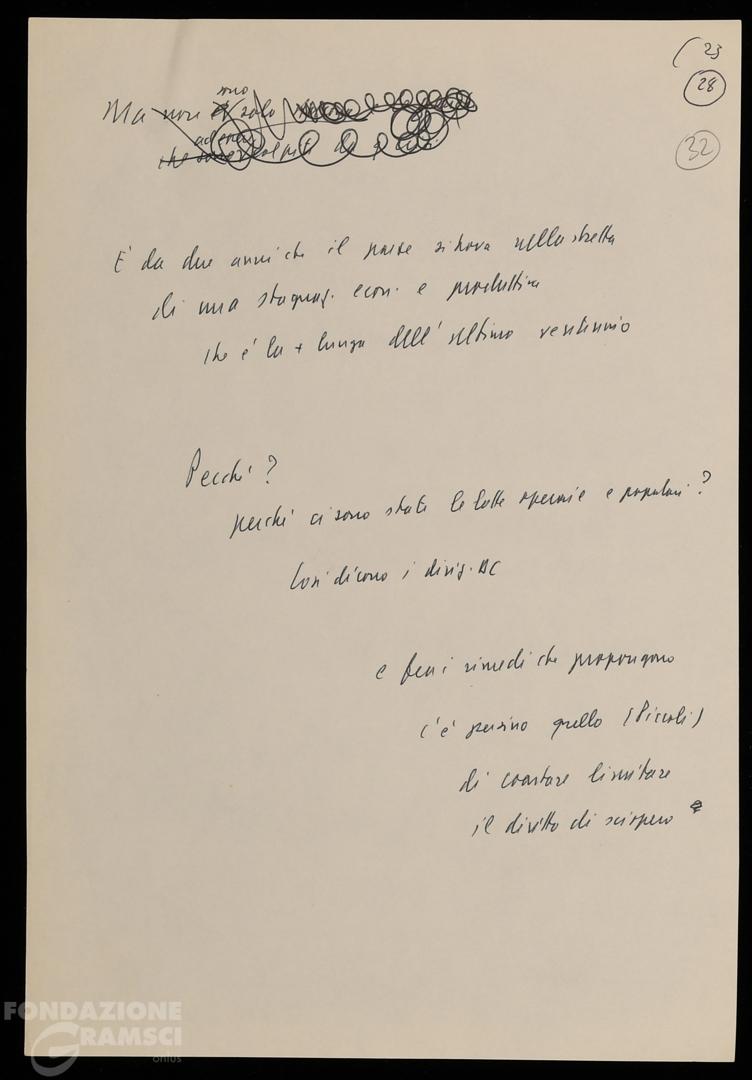 23
28
32
Ma non sono solo
che
È da due anni che il paese si trova nella stretta
di una stagnaz. econ. e produttiva
che è la + lunga dell'ultimo ventennio
Perché?
perché ci sono state le lotte operaie e popolari?
Così dicono i dirig. DC
e fra i rimedi che propongono
c'è persino quello (Piccoli)
di limitare
il diritto di sciopero
FONDAZIONE
GRAMSCI
onlus